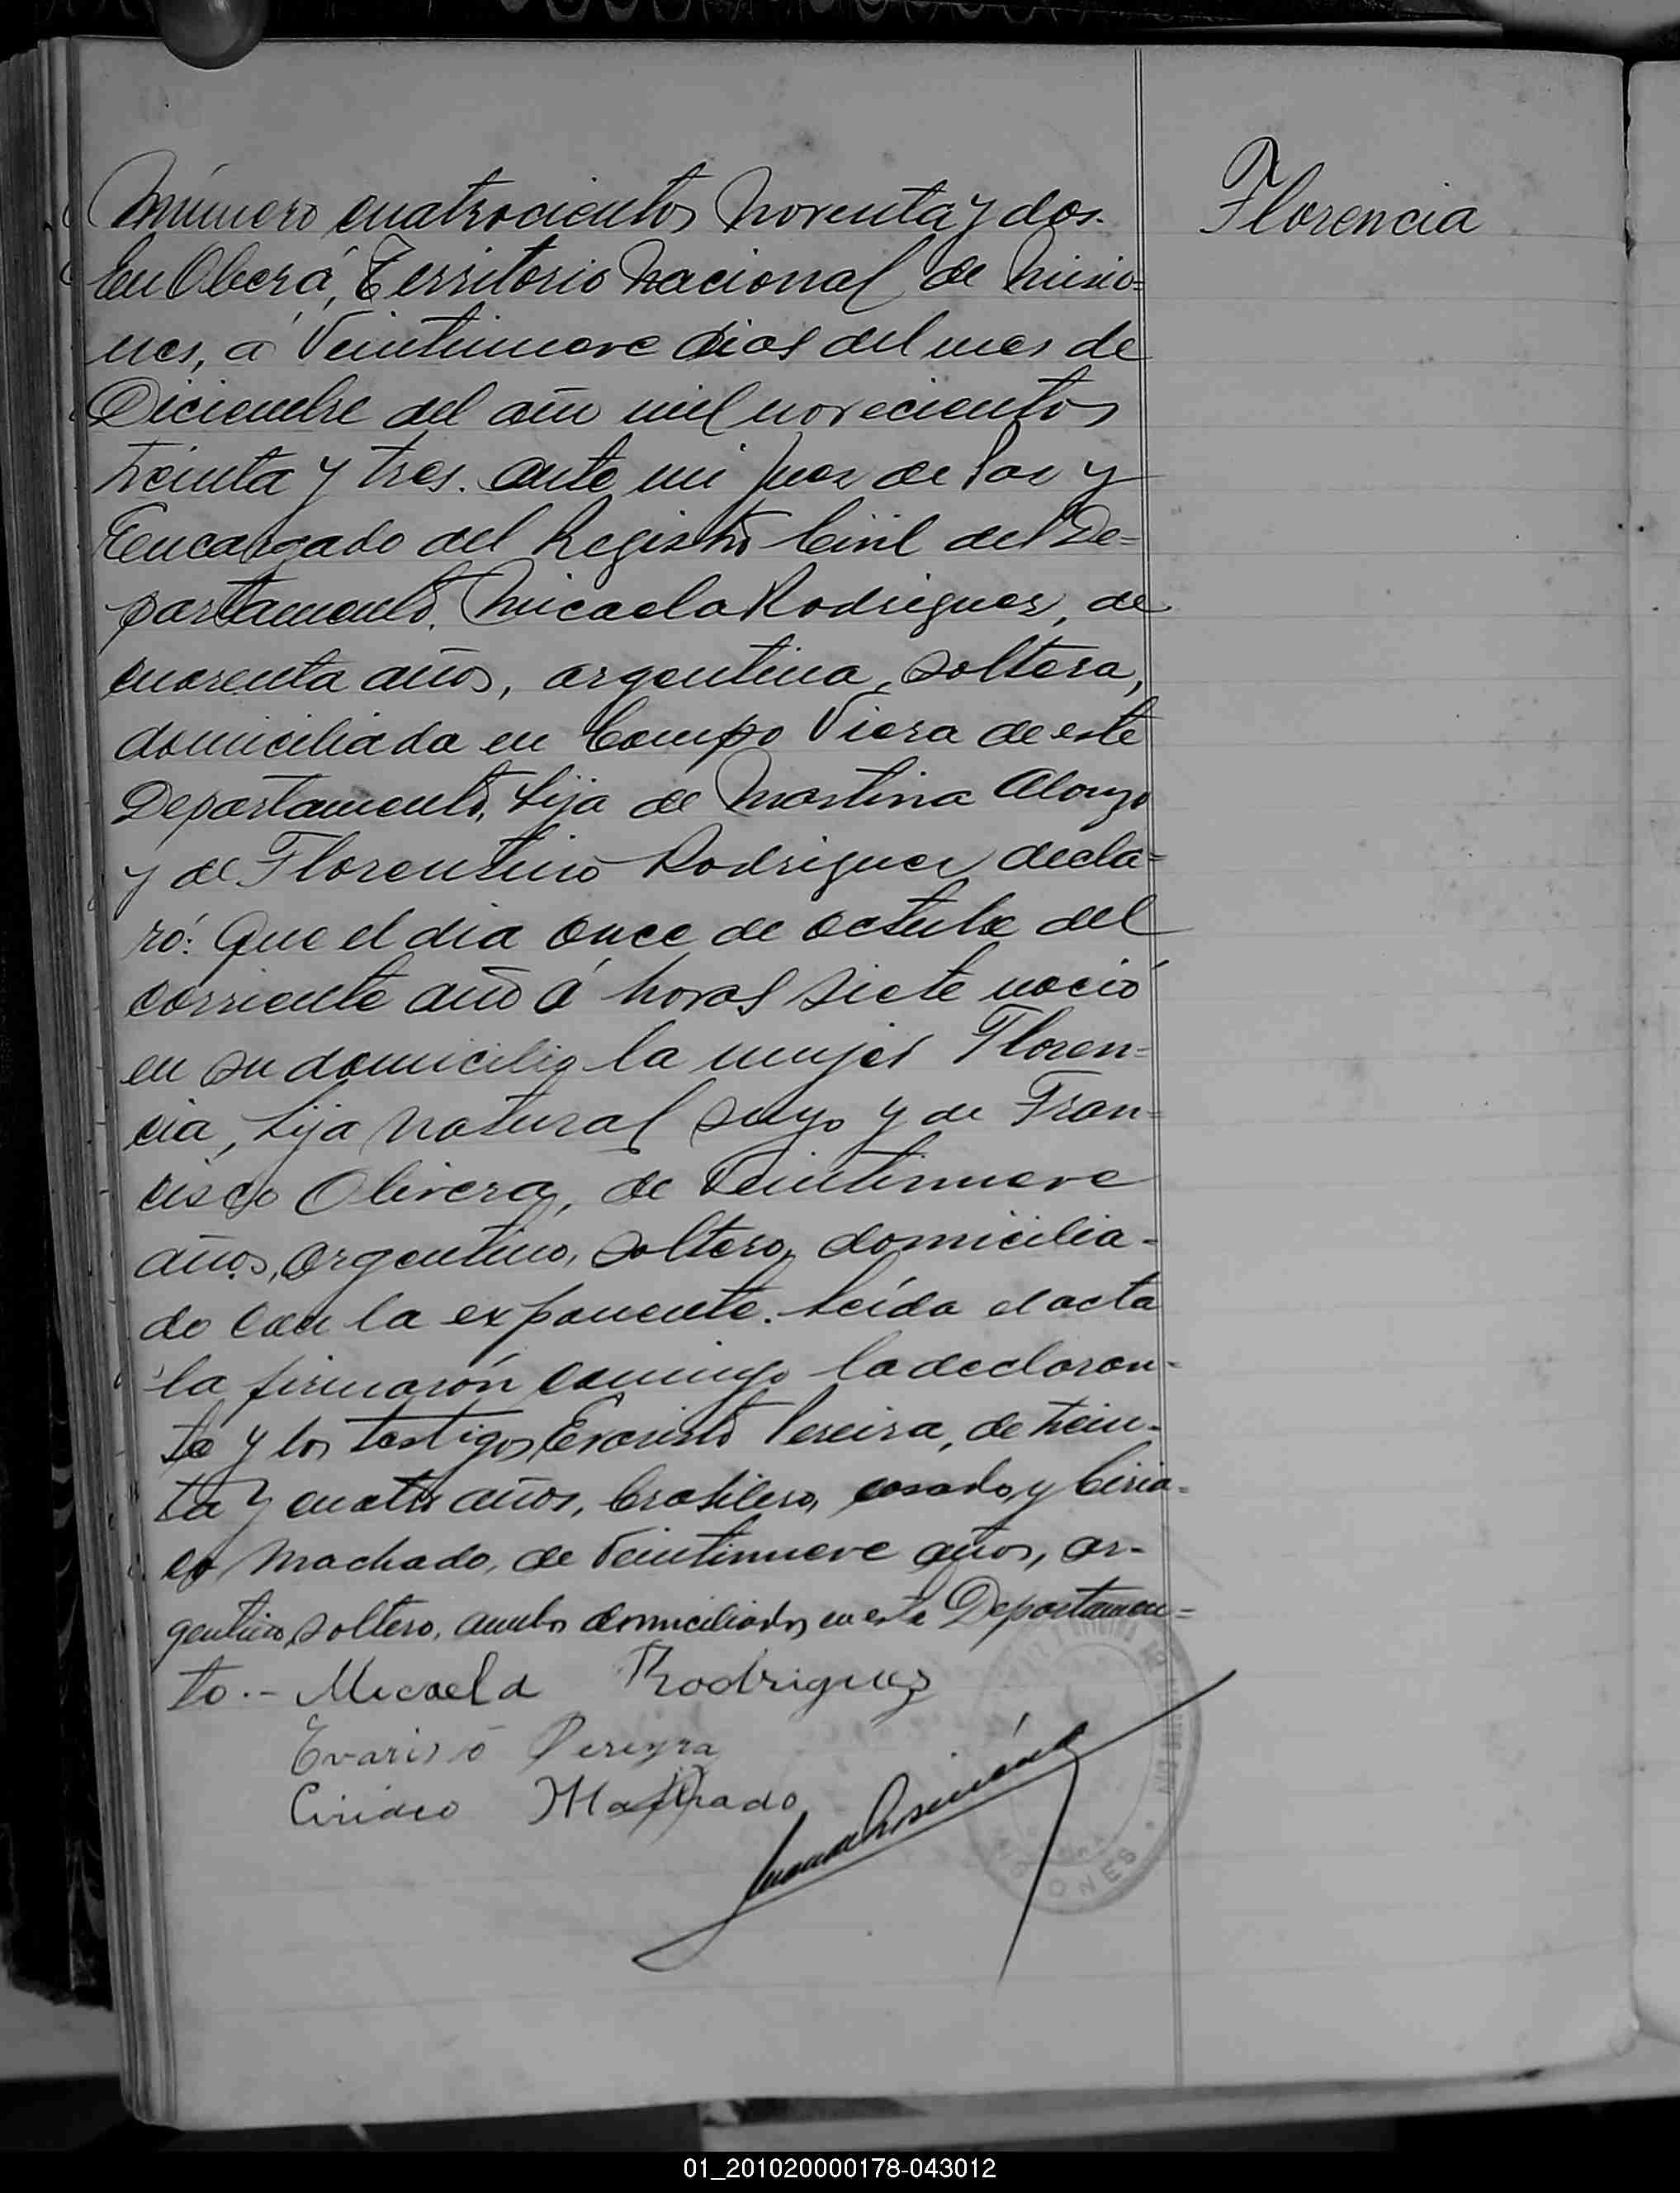 Número cuatrocientos noventa y dos.
Florencia
En Oberá, Territorio Nacional de Misio=
nes, á veintinueve dias del mes de
Diciembre del año mil novecientos
treinta y tres. ante mi Juez de Paz y
Encargado del Registro Civil del De=
partamento, Micaela Rodriguez, de
cuarenta años, argentina, soltera,
domiciliada en Campo Viera de este
Departamento, hija de Martina Alonzo
y de Florentino Rodriguez, decla=
ró: Que el dia once de octubre del
corriente año á horas siete nació
en su domicilio la mujer Floren=
cia, hija natural suya y de Fran=
cisco Olivera, de veintinueve
años, argentino, soltero, domicilia-
do con la exponente. Leída el acta
la firmarón conmigo la declaran-
te y los testigos Evaristo Pereira, de trein-
ta y cuatro años, brasilero, casado, y Ciria-
co Machado, de veintinueve años, ar-
gentino, soltero, ambos domiciliados en este Departamen=
to.- Micaela Rodriguez
Evaristo Pereyra
Ciriaco Machado
ONES